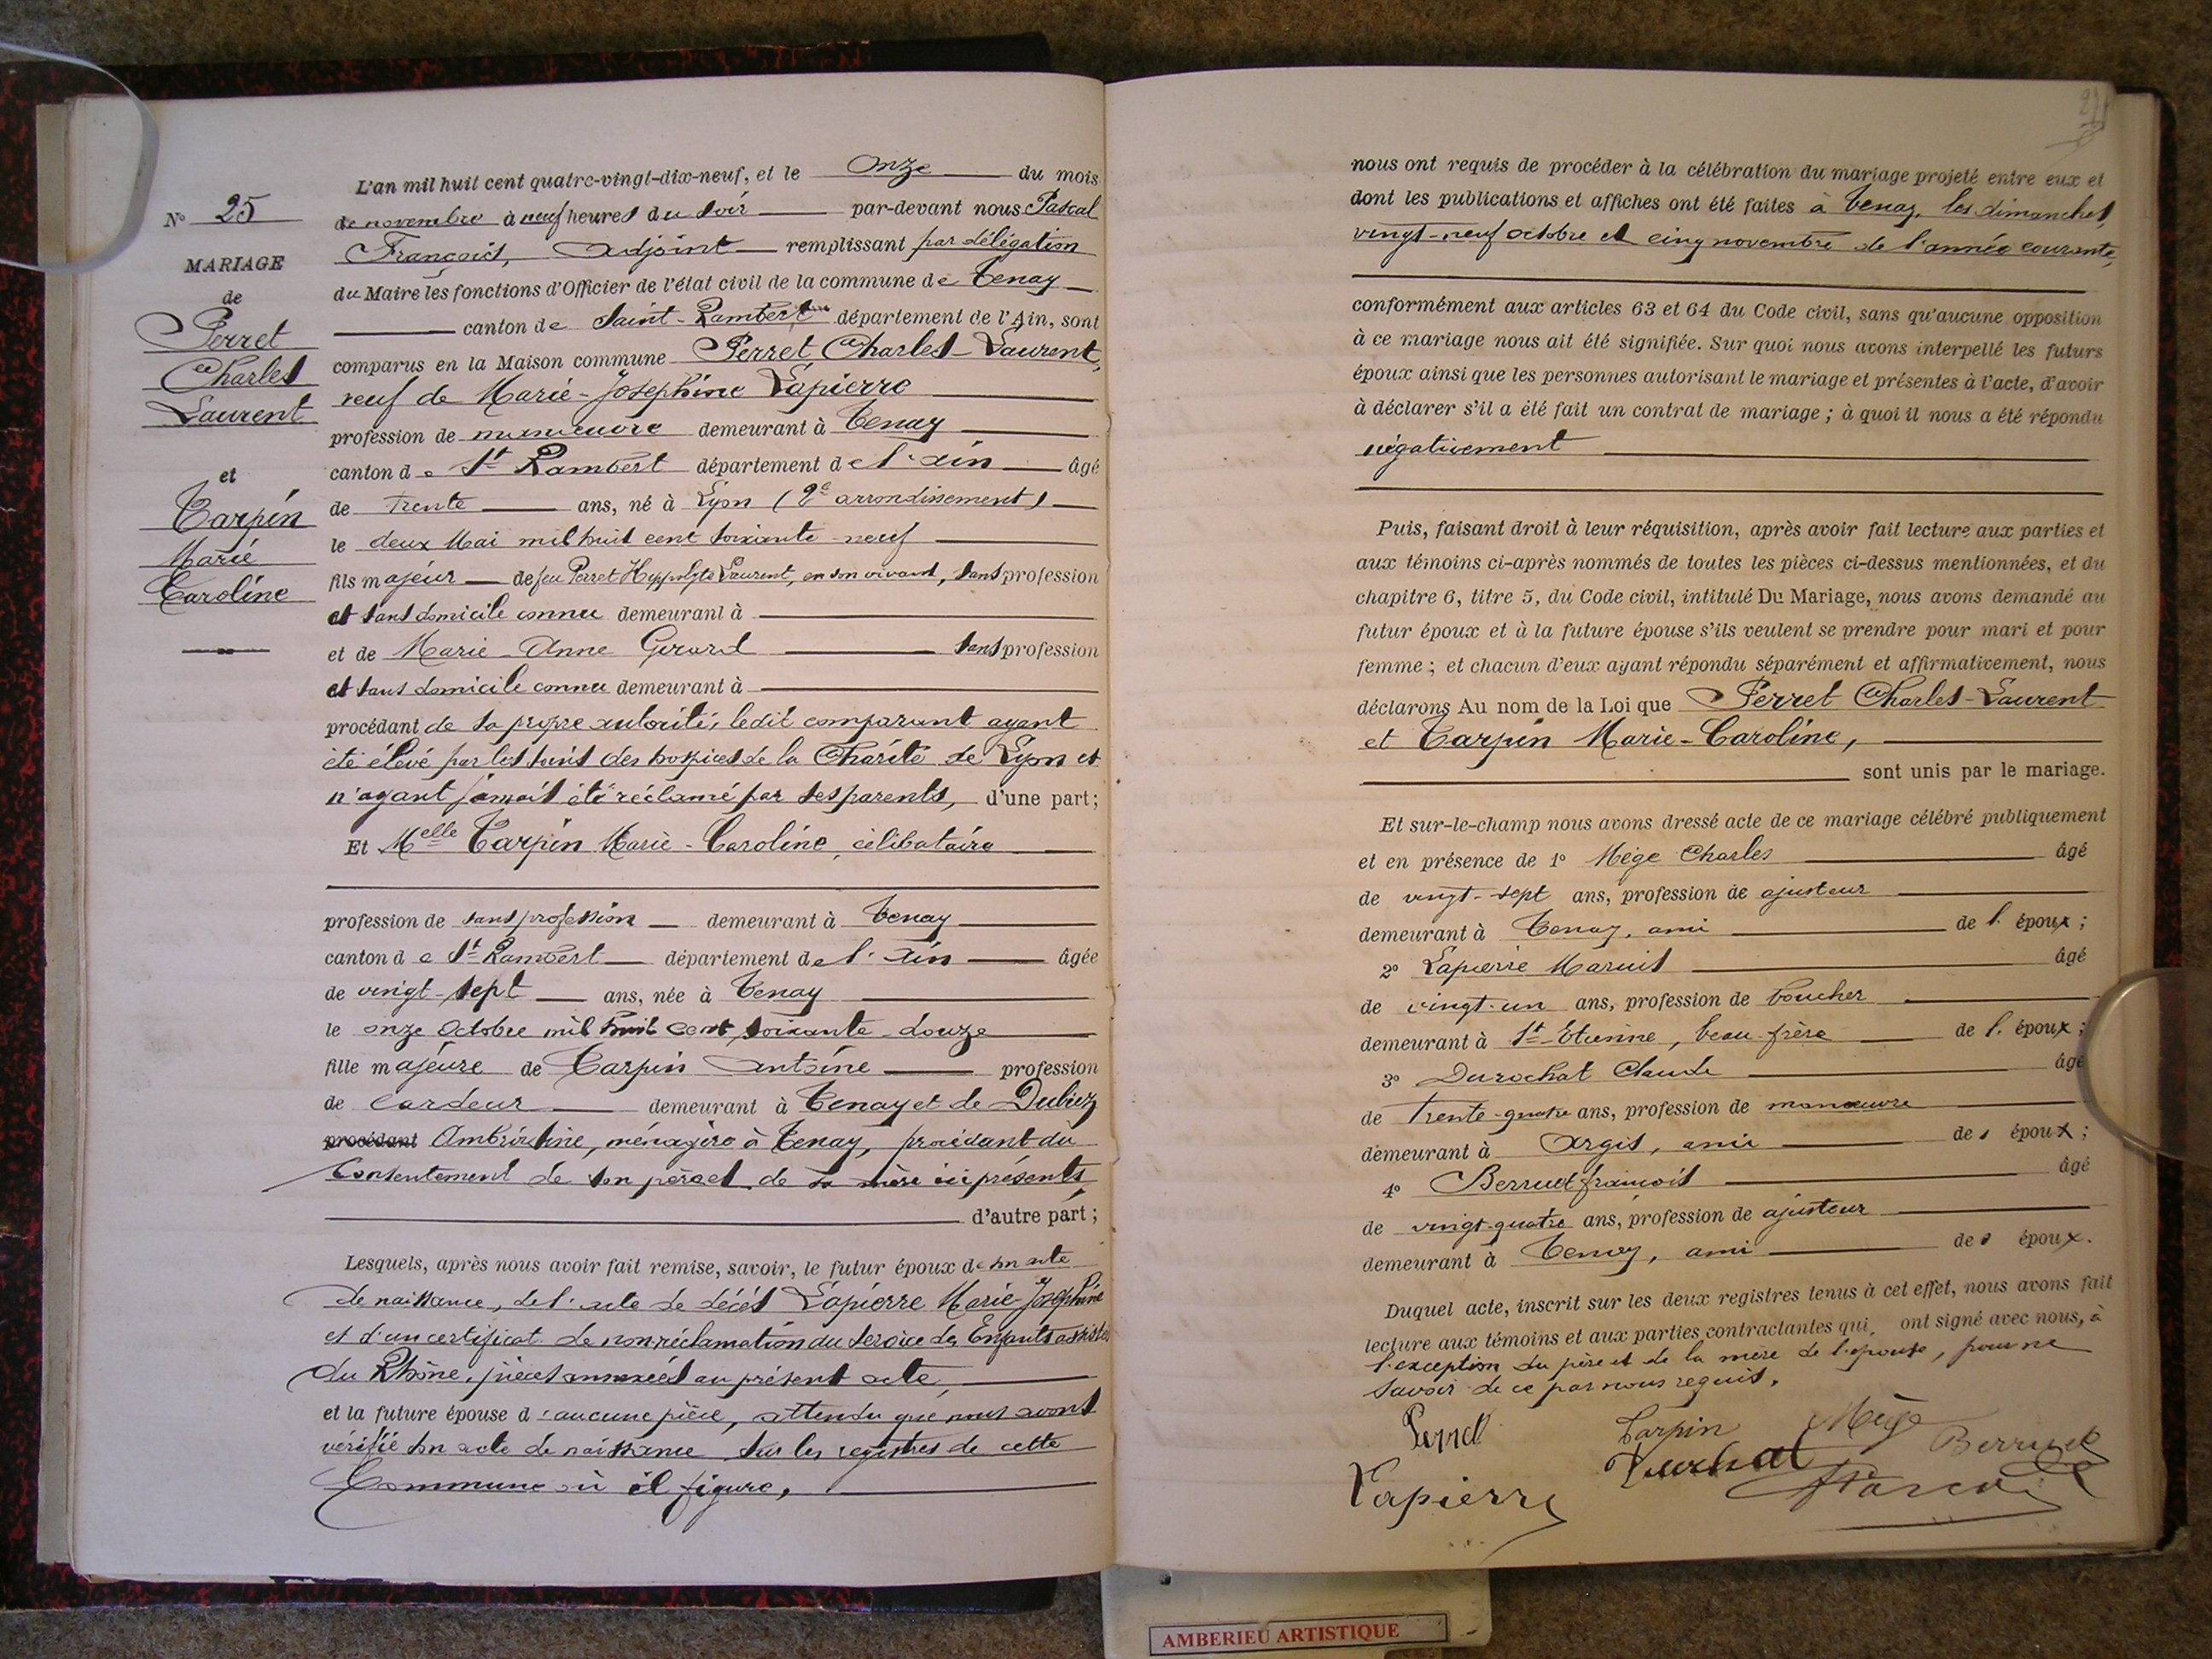 N° 25
MARIAGE
de
Perret
Charles
Laurent
et
Tarpin
Marie
Caroline
L'an mil huit cent quatre-vingt-dix-neuf, et le onze du mois
de novembre à neuf heures du soir par-devant nous Pascal
François, adjoint remplissant par délégation
du Maire les fonctions d'Officier de l'état civil de la commune de Tenay
canton de Saint-Rambert département de l'Ain, sont
comparus en la Maison commune Perret Charles-Laurent,
veuf de Marie-Josephine Lapierre
profession de manœuvre demeurant à Tenay
canton de St Rambert département de l'ain âgé
de trente ans, né à Lyon (2e arrondissement)
le deux Mai mil huit cent soixante-neuf
fils majeur de feu Perret Hyppolyte Laurent, en son vivant, sans profession
et sans domicile connu demeurant à
et de Marie-Anne Gerard sans profession
et sans domicile connu demeurant à
procédant de sa propre autorité, ledit comparant ayant
été élevé par les soins des hospices de la Charité de Lyon et
n'ayant jamais été réclamé par ses parents, d'une part;
Et Melle Tarpin Marie-Caroline, célibataire
profession de sans profession demeurant à Tenay
canton de St Rambert département de l'ain âgée
de vingt-sept ans, née à Tenay
le onze Octobre mil huit cent soixante-douze
fille majeure de Tarpin Antoine profession
de cardeur demeurant à Tenay et de Dubiez
procédant Ambroisine, ménagère à Tenay, procédant du
Consentement de son père et de sa mère ici présents,
d'autre part;
Lesquels, après nous avoir fait remise, savoir, le futur époux de son acte
de naissance, de l'acte de décès Lapierre Marie-Joséphine
et d'un certificat de non-réclamation du Service des Enfants assistés
du Rhône, pièces annexées au présent acte,
et la future épouse d'aucune pièce, attendu que nous avons
vérifié son acte de naissance sur les registres de cette
Commune où il figure,
nous ont requis de procéder à la célébration du mariage projeté entre eux et
dont les publications et affiches ont été faites à Tenay, les dimanches
vingt-neuf octobre et cinq novembre de l'année courante,
conformément aux articles 63 et 64 du Code civil, sans qu'aucune opposition
à ce mariage nous ait été signifiée. Sur quoi nous avons interpellé les futurs
époux ainsi que les personnes autorisant le mariage et présentes à l'acte, d'avoir
à déclarer s'il a été fait un contrat de mariage; à quoi il nous a été répondu
négativement
Puis, faisant droit à leur réquisition, après avoir fait lecture aux parties et
aux témoins ci-après nommés de toutes les pièces ci-dessus mentionnées, et du
chapitre 6, titre 5, du Code civil, intitulé Du Mariage, nous avons demandé au
futur époux et à la future épouse s'ils veulent se prendre pour mari et pour
femme; et chacun d'eux ayant répondu séparément et affirmativement, nous
déclarons Au nom de la Loi que Perret Charles-Laurent
et Tarpin Marie-Caroline,
sont unis par le mariage.
Et sur-le-champ nous avons dressé acte de ce mariage célébré publiquement
et en présence de 1° Mège Charles âgé
de vingt-sept ans, profession de ajusteur
demeurant à Tenay, ami de l'époux;
2° Lapierre Marius âgé
de vingt-un ans, profession de boucher
demeurant à St-Etienne, beau-frère de l'époux;
3° Durochat Claude âgé
de trente-quatre ans, profession de manœuvre
demeurant à Argis, ami des époux;
4° Berrud françois âgé
de vingt-quatre ans, profession de ajusteur
demeurant à Tenay, ami des époux.
Duquel acte, inscrit sur les deux registres tenus à cet effet, nous avons fait
lecture aux témoins et aux parties contractantes qui, ont signé avec nous, à
l'exception du père et de la mère de l'épouse, pour ne
savoir de ce par nous requis.
Perret Tarpin Mège Berrud
Lapierre Durochat Pascal
AMBERIEU ARTISTIQUE